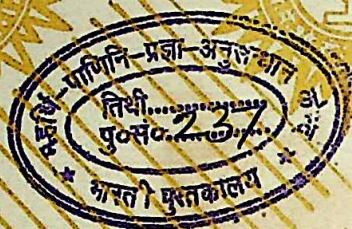 महर्षि-पाणिनि-प्रज्ञा-अनुसन्धान
तिथी..............
पु०सं०..237..
भारती पुस्तकालय